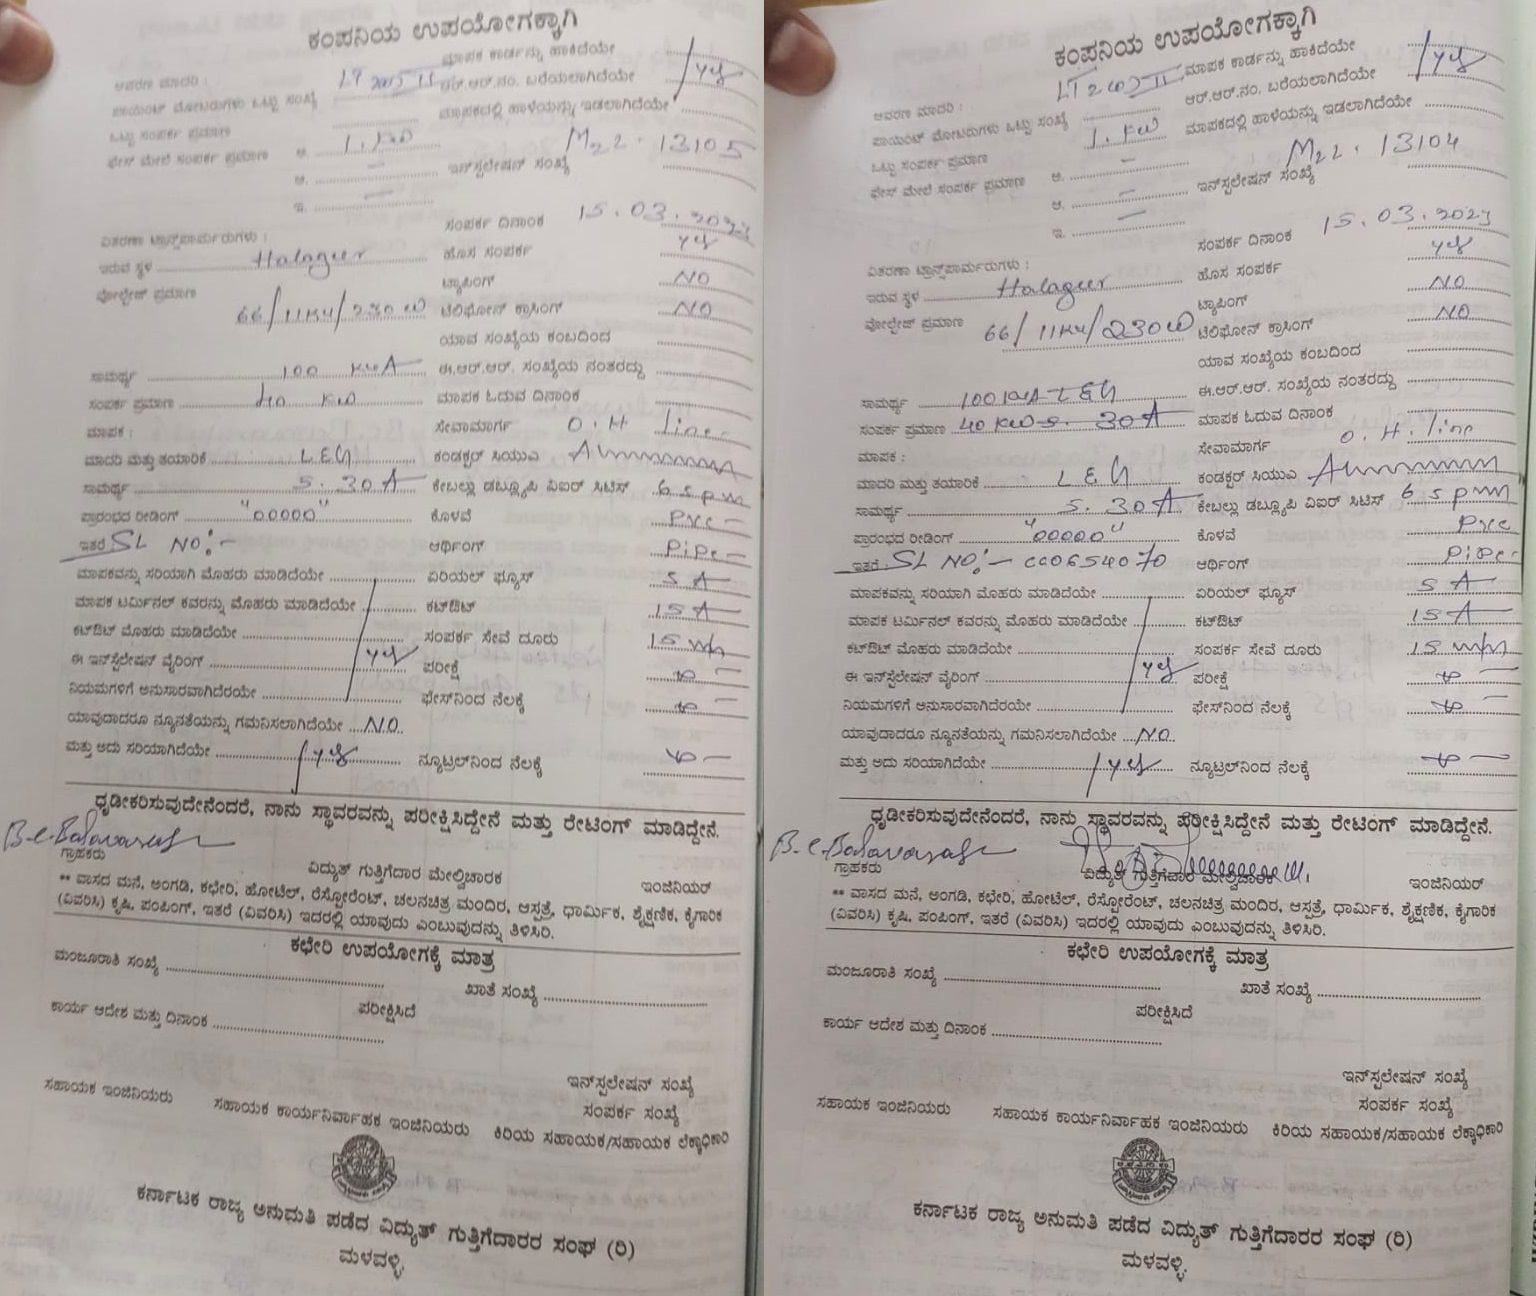 ಕಂಪನಿಯ ಉಪಯೋಗಕ್ಕಾಗಿ
ಮಾಪಕ ಕಾರ್ಡನ್ನು ಹಾಕಿದೆಯೇ
ಆವರಣ ಮಾದರಿ : LT
ಆರ್.ಆರ್.ನಂ. ಬರೆಯಲಾಗಿದೆಯೇ yes
ಪಾಯಿಂಟ್ ಮೋಟರುಗಳು ಒಟ್ಟು ಸಂಖ್ಯೆ
ಮಾಪಕದಲ್ಲಿ ಹಾಳೆಯನ್ನು ಇಡಲಾಗಿದೆಯೇ
ಒಟ್ಟು ಸಂಪರ್ಕ ಪ್ರಮಾಣ
ಫೇಸ್ ಮೇಲೆ ಸಂಪರ್ಕ ಪ್ರಮಾಣ ಅ. 1. KW
ಆ. –
ಇನ್‌ಸ್ಪಲೇಷನ್ ಸಂಖ್ಯೆ M22. 13105
ಇ. –
ಸಂಪರ್ಕ ದಿನಾಂಕ 15.03.2023
ವಿತರಣಾ ಟ್ರಾನ್ಸ್‌ಫಾರ್ಮರುಗಳು :
ಇರುವ ಸ್ಥಳ Halaguru
ಹೊಸ ಸಂಪರ್ಕ yes
ವೋಲ್ಟೇಜ್ ಪ್ರಮಾಣ 66/11KV/230
ಟ್ಯಾಪಿಂಗ್ NO
ಟೆಲಿಫೋನ್ ಕ್ರಾಸಿಂಗ್ NO
ಯಾವ ಸಂಖ್ಯೆಯ ಕಂಬದಿಂದ
ಸಾಮರ್ಥ್ಯ 100 KVA
ಈ.ಆರ್.ಆರ್. ಸಂಖ್ಯೆಯ ನಂತರದ್ದು
ಸಂಪರ್ಕ ಪ್ರಮಾಣ 40 KW
ಮಾಪಕ ಓದುವ ದಿನಾಂಕ
ಮಾಪಕ :
ಸೇವಾಮಾರ್ಗ O.H line
ಮಾದರಿ ಮತ್ತು ತಯಾರಿಕೆ L&G
ಕಂಡಕ್ಟರ್ ಸಿಯುಎ
ಸಾಮರ್ಥ್ಯ 5.30A
ಕೇಬಲ್ಲು ಡಬ್ಲ್ಯೂಪಿ ವಿಐರ್ ಸಿಟಿಸ್
ಪ್ರಾರಂಭದ ರೀಡಿಂಗ್ "00000"
ಕೊಳವೆ PVC –
ಇತರೆ SL NO:-
ಆರ್ಥಿಂಗ್ Pipe –
ಮಾಪಕವನ್ನು ಸರಿಯಾಗಿ ಮೊಹರು ಮಾಡಿದೆಯೇ
ಏರಿಯಲ್ ಫ್ಯೂಸ್ 5 A
ಮಾಪಕ ಟರ್ಮಿನಲ್ ಕವರನ್ನು ಮೊಹರು ಮಾಡಿದೆಯೇ
ಕಟ್‌ಔಟ್ 15 A
ಕಟ್‌ಔಟ್ ಮೊಹರು ಮಾಡಿದೆಯೇ
ಸಂಪರ್ಕ ಸೇವೆ ದೂರು
ಈ ಇನ್‌ಸ್ಪಲೇಷನ್ ವೈರಿಂಗ್ yes
ಪರೀಕ್ಷೆ
ನಿಯಮಗಳಿಗೆ ಅನುಸಾರವಾಗಿದೆರಯೇ
ಫೇಸ್‌ನಿಂದ ನೆಲಕ್ಕೆ
ಯಾವುದಾದರೂ ನ್ಯೂನತೆಯನ್ನು ಗಮನಿಸಲಾಗಿದೆಯೇ NO
ಮತ್ತು ಅದು ಸರಿಯಾಗಿದೆಯೇ yes
ನ್ಯೂಟ್ರಲ್‌ನಿಂದ ನೆಲಕ್ಕೆ
ಧೃಡೀಕರಿಸುವುದೇನೆಂದರೆ, ನಾನು ಸ್ಥಾವರವನ್ನು ಪರೀಕ್ಷಿಸಿದ್ದೇನೆ ಮತ್ತು ರೇಟಿಂಗ್ ಮಾಡಿದ್ದೇನೆ.
ಗ್ರಾಹಕರು
ವಿದ್ಯುತ್ ಗುತ್ತಿಗೆದಾರ ಮೇಲ್ವಿಚಾರಕ
ಇಂಜಿನಿಯರ್
** ವಾಸದ ಮನೆ, ಅಂಗಡಿ, ಕಛೇರಿ, ಹೋಟೆಲ್, ರೆಸ್ಟೋರೆಂಟ್, ಚಲನಚಿತ್ರ ಮಂದಿರ, ಆಸ್ಪತ್ರೆ, ಧಾರ್ಮಿಕ, ಶೈಕ್ಷಣಿಕ, ಕೈಗಾರಿಕ
(ವಿವರಿಸಿ) ಕೃಷಿ, ಪಂಪಿಂಗ್, ಇತರೆ (ವಿವರಿಸಿ) ಇದರಲ್ಲಿ ಯಾವುದು ಎಂಬುವುದನ್ನು ತಿಳಿಸಿರಿ.
ಕಛೇರಿ ಉಪಯೋಗಕ್ಕೆ ಮಾತ್ರ
ಮಂಜೂರಾತಿ ಸಂಖ್ಯೆ
ಖಾತೆ ಸಂಖ್ಯೆ
ಪರೀಕ್ಷಿಸಿದೆ
ಕಾರ್ಯ ಆದೇಶ ಮತ್ತು ದಿನಾಂಕ
ಇನ್‌ಸ್ಪಲೇಷನ್ ಸಂಖ್ಯೆ
ಸಂಪರ್ಕ ಸಂಖ್ಯೆ
ಸಹಾಯಕ ಇಂಜಿನಿಯರು
ಸಹಾಯಕ ಕಾರ್ಯನಿರ್ವಾಹಕ ಇಂಜಿನಿಯರು
ಕಿರಿಯ ಸಹಾಯಕ/ಸಹಾಯಕ ಲೆಕ್ಕಾಧಿಕಾರಿ
ಕರ್ನಾಟಕ ರಾಜ್ಯ ಅನುಮತಿ ಪಡೆದ ವಿದ್ಯುತ್ ಗುತ್ತಿಗೆದಾರರ ಸಂಘ (ರಿ)
ಮಳವಳ್ಳಿ.
ಕಂಪನಿಯ ಉಪಯೋಗಕ್ಕಾಗಿ
ಮಾಪಕ ಕಾರ್ಡನ್ನು ಹಾಕಿದೆಯೇ
ಆವರಣ ಮಾದರಿ : LT
ಆರ್.ಆರ್.ನಂ. ಬರೆಯಲಾಗಿದೆಯೇ yes
ಪಾಯಿಂಟ್ ಮೋಟರುಗಳು ಒಟ್ಟು ಸಂಖ್ಯೆ
ಮಾಪಕದಲ್ಲಿ ಹಾಳೆಯನ್ನು ಇಡಲಾಗಿದೆಯೇ
ಒಟ್ಟು ಸಂಪರ್ಕ ಪ್ರಮಾಣ 1. KW
ಫೇಸ್ ಮೇಲೆ ಸಂಪರ್ಕ ಪ್ರಮಾಣ ಅ. –
ಆ. –
ಇನ್‌ಸ್ಪಲೇಷನ್ ಸಂಖ್ಯೆ M22. 13104
ಇ. –
ಸಂಪರ್ಕ ದಿನಾಂಕ 15.03.2023
ವಿತರಣಾ ಟ್ರಾನ್ಸ್‌ಫಾರ್ಮರುಗಳು :
ಇರುವ ಸ್ಥಳ Halaguru
ಹೊಸ ಸಂಪರ್ಕ yes
ವೋಲ್ಟೇಜ್ ಪ್ರಮಾಣ 66/11KV/230
ಟ್ಯಾಪಿಂಗ್ NO
ಟೆಲಿಫೋನ್ ಕ್ರಾಸಿಂಗ್ NO
ಯಾವ ಸಂಖ್ಯೆಯ ಕಂಬದಿಂದ
ಸಾಮರ್ಥ್ಯ 100 KVA L&G
ಈ.ಆರ್.ಆರ್. ಸಂಖ್ಯೆಯ ನಂತರದ್ದು
ಸಂಪರ್ಕ ಪ್ರಮಾಣ 40 KW 5. 30A
ಮಾಪಕ ಓದುವ ದಿನಾಂಕ
ಮಾಪಕ :
ಸೇವಾಮಾರ್ಗ O.H. line
ಮಾದರಿ ಮತ್ತು ತಯಾರಿಕೆ L&G
ಕಂಡಕ್ಟರ್ ಸಿಯುಎ
ಸಾಮರ್ಥ್ಯ 5.30A
ಕೇಬಲ್ಲು ಡಬ್ಲ್ಯೂಪಿ ವಿಐರ್ ಸಿಟಿಸ್
ಪ್ರಾರಂಭದ ರೀಡಿಂಗ್ "00000"
ಕೊಳವೆ PVC
ಇತರೆ SL NO:- CC0654070
ಆರ್ಥಿಂಗ್ Pipe
ಮಾಪಕವನ್ನು ಸರಿಯಾಗಿ ಮೊಹರು ಮಾಡಿದೆಯೇ
ಏರಿಯಲ್ ಫ್ಯೂಸ್ 5 A
ಮಾಪಕ ಟರ್ಮಿನಲ್ ಕವರನ್ನು ಮೊಹರು ಮಾಡಿದೆಯೇ
ಕಟ್‌ಔಟ್ 15 A
ಕಟ್‌ಔಟ್ ಮೊಹರು ಮಾಡಿದೆಯೇ
ಸಂಪರ್ಕ ಸೇವೆ ದೂರು
ಈ ಇನ್‌ಸ್ಪಲೇಷನ್ ವೈರಿಂಗ್ yes
ಪರೀಕ್ಷೆ
ನಿಯಮಗಳಿಗೆ ಅನುಸಾರವಾಗಿದೆರಯೇ
ಫೇಸ್‌ನಿಂದ ನೆಲಕ್ಕೆ
ಯಾವುದಾದರೂ ನ್ಯೂನತೆಯನ್ನು ಗಮನಿಸಲಾಗಿದೆಯೇ NO
ಮತ್ತು ಅದು ಸರಿಯಾಗಿದೆಯೇ yes
ನ್ಯೂಟ್ರಲ್‌ನಿಂದ ನೆಲಕ್ಕೆ
ಧೃಡೀಕರಿಸುವುದೇನೆಂದರೆ, ನಾನು ಸ್ಥಾವರವನ್ನು ಪರೀಕ್ಷಿಸಿದ್ದೇನೆ ಮತ್ತು ರೇಟಿಂಗ್ ಮಾಡಿದ್ದೇನೆ.
ಗ್ರಾಹಕರು
ವಿದ್ಯುತ್ ಗುತ್ತಿಗೆದಾರ ಮೇಲ್ವಿಚಾರಕ
ಇಂಜಿನಿಯರ್
** ವಾಸದ ಮನೆ, ಅಂಗಡಿ, ಕಛೇರಿ, ಹೋಟೆಲ್, ರೆಸ್ಟೋರೆಂಟ್, ಚಲನಚಿತ್ರ ಮಂದಿರ, ಆಸ್ಪತ್ರೆ, ಧಾರ್ಮಿಕ, ಶೈಕ್ಷಣಿಕ, ಕೈಗಾರಿಕ
(ವಿವರಿಸಿ) ಕೃಷಿ, ಪಂಪಿಂಗ್, ಇತರೆ (ವಿವರಿಸಿ) ಇದರಲ್ಲಿ ಯಾವುದು ಎಂಬುವುದನ್ನು ತಿಳಿಸಿರಿ.
ಕಛೇರಿ ಉಪಯೋಗಕ್ಕೆ ಮಾತ್ರ
ಮಂಜೂರಾತಿ ಸಂಖ್ಯೆ
ಖಾತೆ ಸಂಖ್ಯೆ
ಪರೀಕ್ಷಿಸಿದೆ
ಕಾರ್ಯ ಆದೇಶ ಮತ್ತು ದಿನಾಂಕ
ಇನ್‌ಸ್ಪಲೇಷನ್ ಸಂಖ್ಯೆ
ಸಂಪರ್ಕ ಸಂಖ್ಯೆ
ಸಹಾಯಕ ಇಂಜಿನಿಯರು
ಸಹಾಯಕ ಕಾರ್ಯನಿರ್ವಾಹಕ ಇಂಜಿನಿಯರು
ಕಿರಿಯ ಸಹಾಯಕ/ಸಹಾಯಕ ಲೆಕ್ಕಾಧಿಕಾರಿ
ಕರ್ನಾಟಕ ರಾಜ್ಯ ಅನುಮತಿ ಪಡೆದ ವಿದ್ಯುತ್ ಗುತ್ತಿಗೆದಾರರ ಸಂಘ (ರಿ)
ಮಳವಳ್ಳಿ.